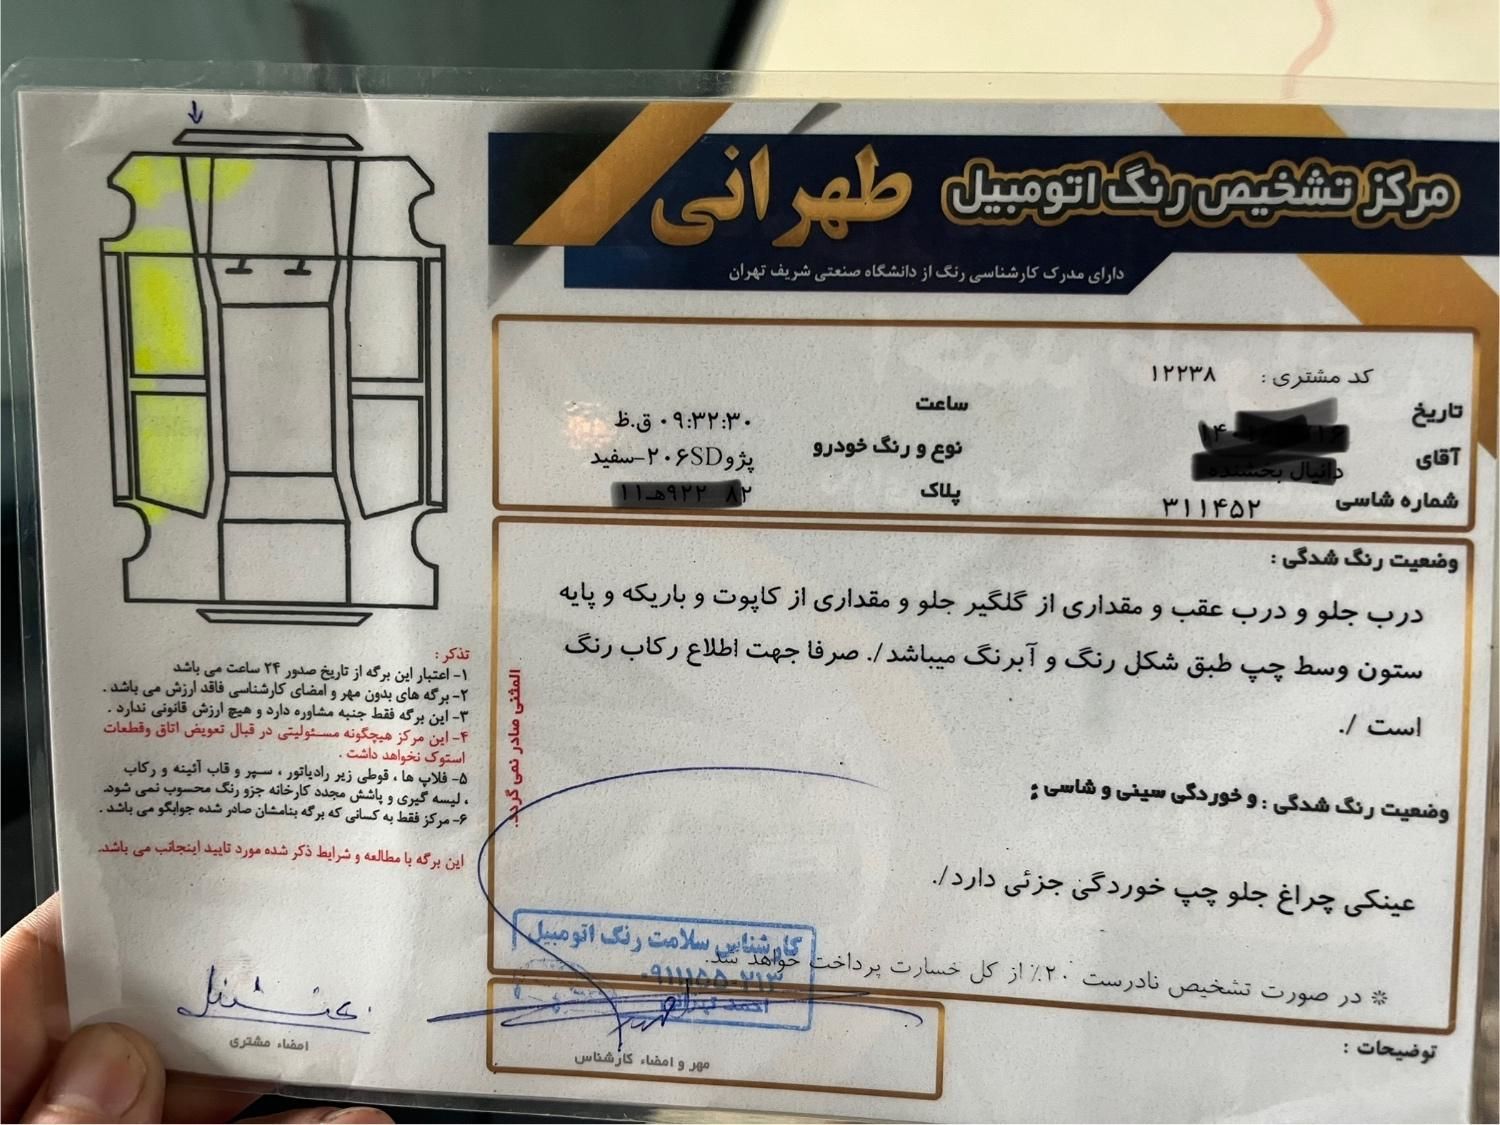 مرکز تشخیص رنگ اتومبیل طهرانی
دارای مدرک کارشناسی رنگ از دانشگاه صنعتی شریف تهران
کد مشتری : ۱۲۲۳۸
تاریخ
ساعت ۰۹:۳۲:۳۰ ق.ظ
آقای
نوع و رنگ خودرو پژو۲۰۶SD-سفید
شماره شاسی ۳۱۱۴۵۲
پلاک
وضعیت رنگ شدگی :
درب جلو و درب عقب و مقداری از گلگیر جلو و مقداری از کاپوت و باریکه و پایه
ستون وسط چپ طبق شکل رنگ و آبرنگ میباشد/. صرفا جهت اطلاع رکاب رنگ
است /.
وضعیت رنگ شدگی : و خوردگی سینی و شاسی :
عینکی چراغ جلو چپ خوردگی جزئی دارد/.
※ در صورت تشخیص نادرست ۲۰٪ از کل خسارت پرداخت خواهد شد.
توضیحات :
کارشناس سلامت رنگ اتومبیل
مهر و امضاء کارشناس
المثنی صادر نمی گردد.
تذکر :
۱- اعتبار این برگه از تاریخ صدور ۲۴ ساعت می باشد
۲- برگه های بدون مهر و امضای کارشناسی فاقد ارزش می باشد .
۳- این برگه فقط جنبه مشاوره دارد و هیچ ارزش قانونی ندارد .
۴- این مرکز هیچگونه مسئولیتی در قبال تعویض اتاق وقطعات
استوک نخواهد داشت .
۵- فلاپ ها ، قوطی زیر رادیاتور ، سپر و قاب آئینه و رکاب
، لیسه گیری و پاشش مجدد کارخانه جزو رنگ محسوب نمی شود.
۶- مرکز فقط به کسانی که برگه بنامشان صادر شده جوابگو می باشد .
این برگه با مطالعه و شرایط ذکر شده مورد تایید اینجانب می باشد.
امضاء مشتری